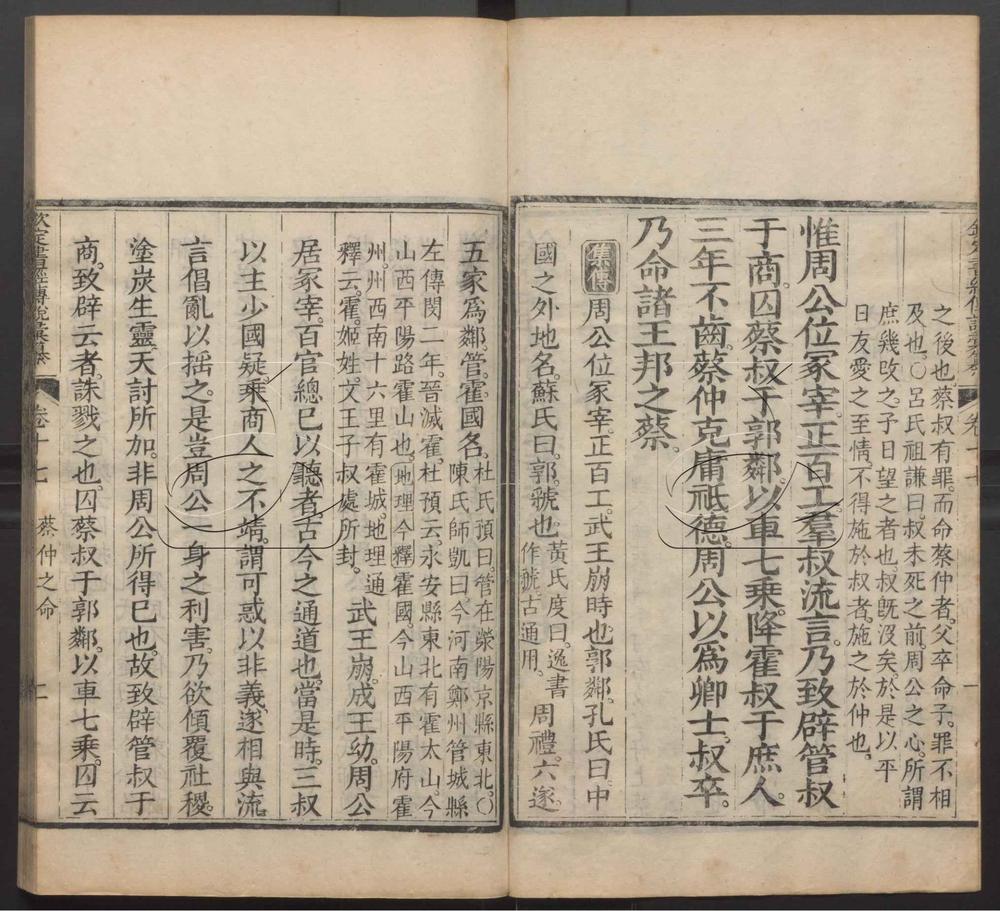 之後也。蔡叔有罪。而命蔡仲者。父卒命子。罪不相
及也。○呂氏祖謙曰。叔未死之前。周公之心。所謂
庶幾改之。予日望之者也。叔旣沒矣。於是以平
日友愛之至情。不得施於叔者。施之於仲也。
惟周公位冢宰。正百工。羣叔流言。乃致辟管叔
于商。囚蔡叔于郭鄰。以車七乘。降霍叔于庶人。
三年不齒。蔡仲克庸祗德。周公以爲卿士。叔卒。
乃命諸王邦之蔡。
集傳 周公位冢宰。正百工。武王崩時也。郭鄰。孔氏曰。中
國之外地名。蘇氏曰。郭。虢也。黃氏度曰。逸書作虢。古通用。周禮。六遂。
五家爲鄰。管。霍。國名。杜氏預曰。管在滎陽京縣東北。○陳氏師凱曰。今河南鄭州管城縣
左傳閔二年。晉滅霍。杜預云。永安縣東北有霍太山。今
山西平陽路霍山也。地理今釋。霍國。今山西平陽府霍
州。州西南十六里有霍城。地理通釋云。霍。姬姓。文王子叔處所封。武王崩。成王幼。周公
居冢宰。百官總已以聽者。古今之通道也。當是時。三叔
以主少國疑。乘商人之不靖。謂可惑以非義。遂相與流
言倡亂以搖之。是豈周公一身之利害。乃欲傾覆社稷。
塗炭生靈。天討所加。非周公所得已也。故致辟管叔于
商。致辟云者。誅戮之也。囚蔡叔于郭鄰。以車七乘。囚云
欽定書經傳說彙纂 卷十七 蔡仲之命 二